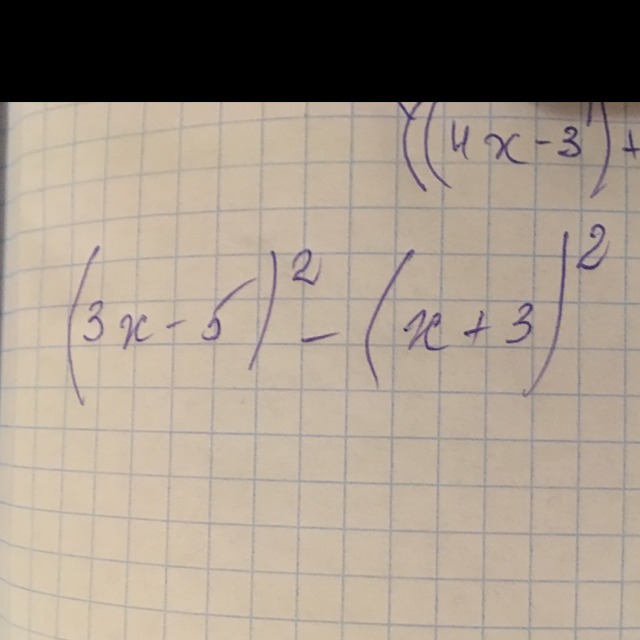 ((4x-3)+
(3x-5)²-(x+3)²